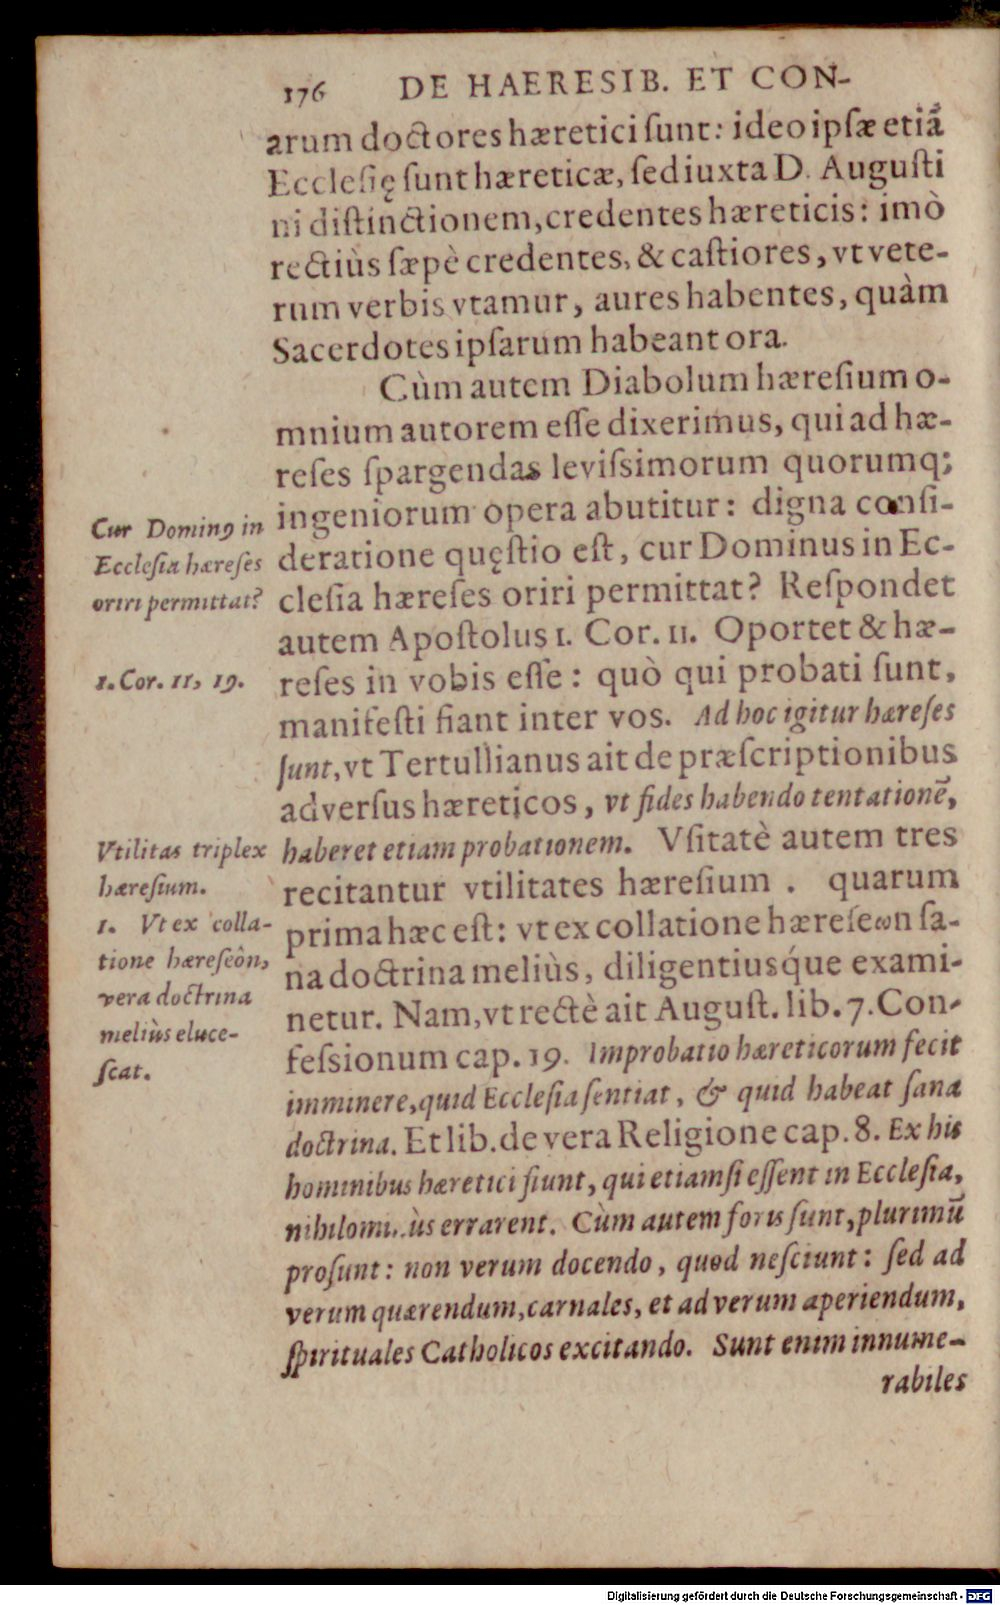 176 DE HAERESIB. ET CON-
arum doctores hæretici ſunt: ideo ipſæ etiã
Eccleſię ſunt hæreticæ, ſed iuxta D. Auguſti
ni diſtinctionem, credentes hæreticis: imò
rectiùs ſæpè credentes, & caſtiores, vt vete-
rum verbis vtamur, aures habentes, quàm
Sacerdotes ipſarum habeant ora.
Cùm autem Diabolum hæreſium o-
mnium autorem eſſe dixerimus, qui ad hæ-
reſes ſpargendas leviſsimorum quorumq;
ingeniorum opera abutitur: digna conſi-
deratione quęſtio eſt, cur Dominus in Ec-
cleſia hæreſes oriri permittat? Reſpondet
autem Apoſtolus 1. Cor. 11. Oportet & hæ-
reſes in vobis eſſe: quò qui probati ſunt,
manifeſti fiant inter vos. Ad hoc igitur hæreſes
ſunt, vt Tertullianus ait de præſcriptionibus
adverſus hæreticos, vt fides habendo tentationẽ,
haberet etiam probationem. Vſitatè autem tres
recitantur vtilitates hæreſium. quarum
prima hæc eſt: vt ex collatione hæreſeωn ſa-
na doctrina meliùs, diligentiusq́ue exami-
netur. Nam, vt rectè ait Auguſt. lib. 7. Con-
feſsionum cap. 19. Improbatio hæreticorum fecit
imminere, quid Eccleſia ſentiat, & quid habeat ſana
doctrina. Et lib. de vera Religione cap. 8. Ex his
hominibus hæretici fiunt, qui etiamſi eſſent in Eccleſia,
errarent. Cùm autem foris ſunt, plurimũ
proſunt: non verum docendo, quod neſciunt: ſed ad
verum quærendum, carnales, et ad verum aperiendum,
ſpirituales Catholicos excitando. Sunt enim innume-
rabiles
Cur Dominꝰ in
Eccleſia hæreſes
oriri permittat?
1. Cor. 11, 19.
Vtilitas triplex
hæreſium.
1. Vt ex colla-
tione hæreſeôn,
vera doctrina
meliùs eluce-
ſcat.
Digitalisierung gefördert durch die Deutsche Forschungsgemeinschaft - DFG